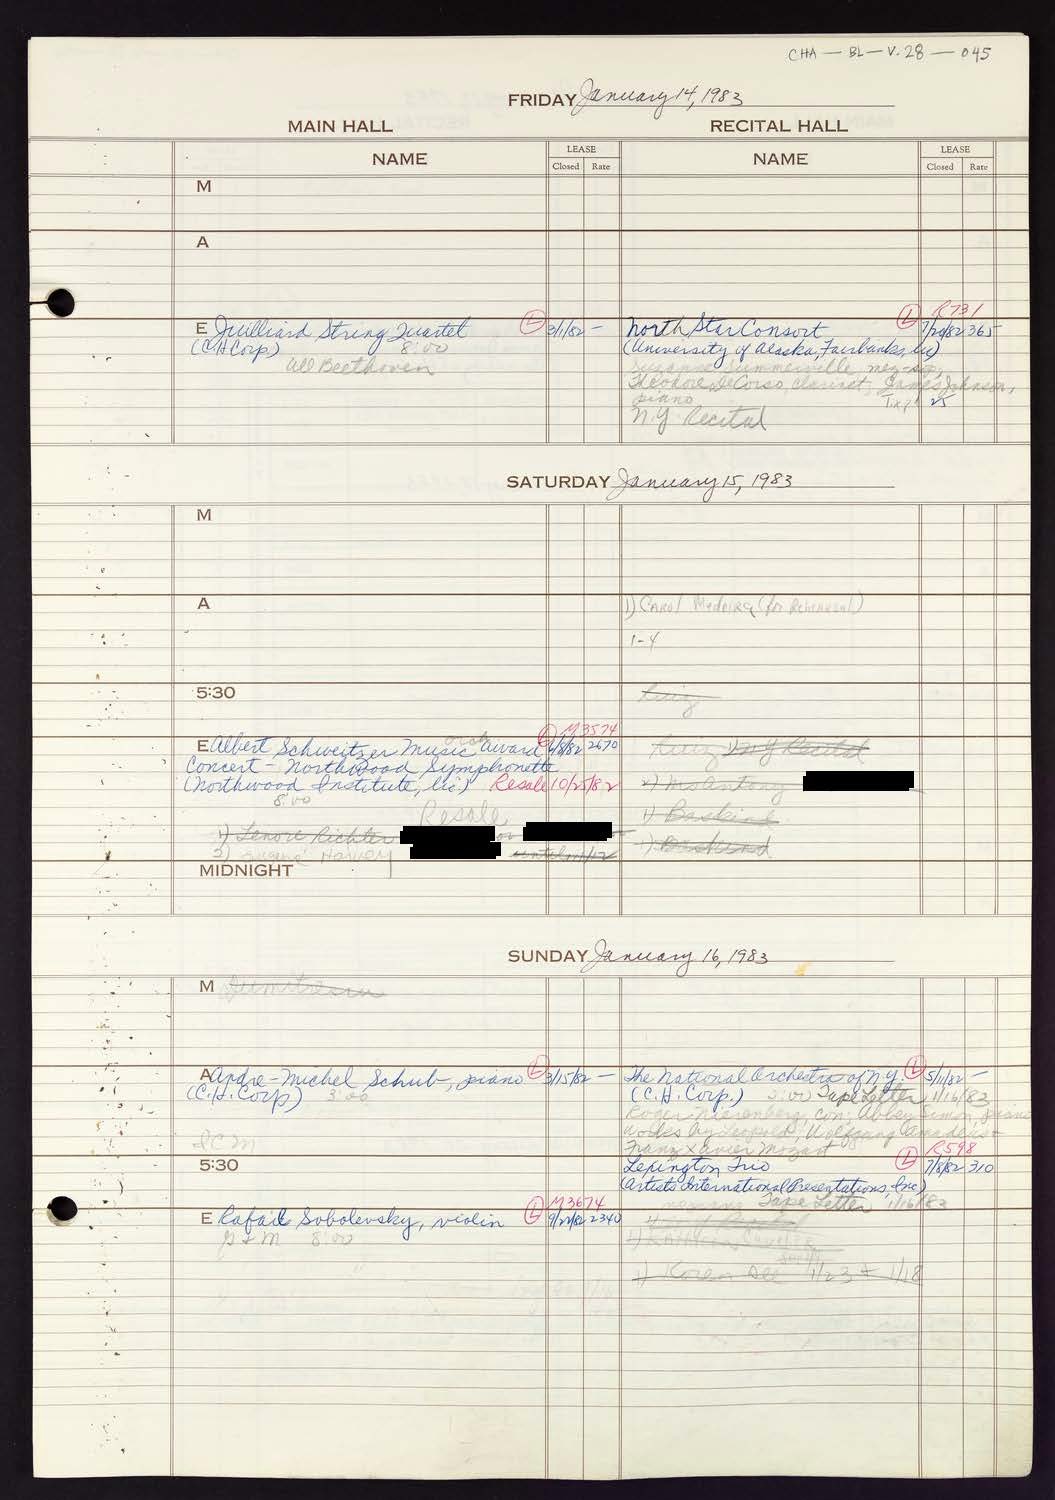 CHA — BL — V. 28 — 045
FRIDAY January 14, 1983
MAIN HALL RECITAL HALL
NAME LEASE Closed Rate NAME LEASE Closed Rate
M
A
R731
E Juilliard String Quartet L 3/1/82 — North Star Consort L 7/20/82 365
(C.H. Corp) 8:00 (University of Alaska, Fairbanks,
All Beethoven Suzanne Summerville, mez-sop,
Theodore DeCorso, clarinet, James Johnson,
piano Tix? 25
N.Y. Recital
SATURDAY January 15, 1983
M
A 1) Carol Medeira (for Rehearsal)
1-4
5:30
M3574
E Albert Schweitzer Music Award L 6/8/82 2670 N Y Recital
Concert - Northwood Symphonette
(Northwood Institute, Resale 10/25/82 2) McAntony
8:00
Resale 1) Baskind
1) Lenore Richter or 1) Baskind
3) Harvey
MIDNIGHT
SUNDAY January 16, 1983
M Dumitrescu
A Andre-Michel Schub, piano L 3/15/82 — The National Orchestra of N.Y. L 5/11/82 —
(C.H. Corp) 3:00 (C.H. Corp.) 2:00 Tape Letter 1/16/83
Roger Nierenberg, con; Abbey Simon, piano
Works by Leopold, Wolfgang Amadeus +
ICM Franz Xavier Mozart R598
5:30 Lexington Trio L 7/8/82 310
(Artists International Presentations, Inc)
M3674 Tape Letter 1/16/83
E Rafail Sobolevsky, violin L 9/22/82 2340
8:00 1) Kathleen
1) Karen 1/23 + 1/18